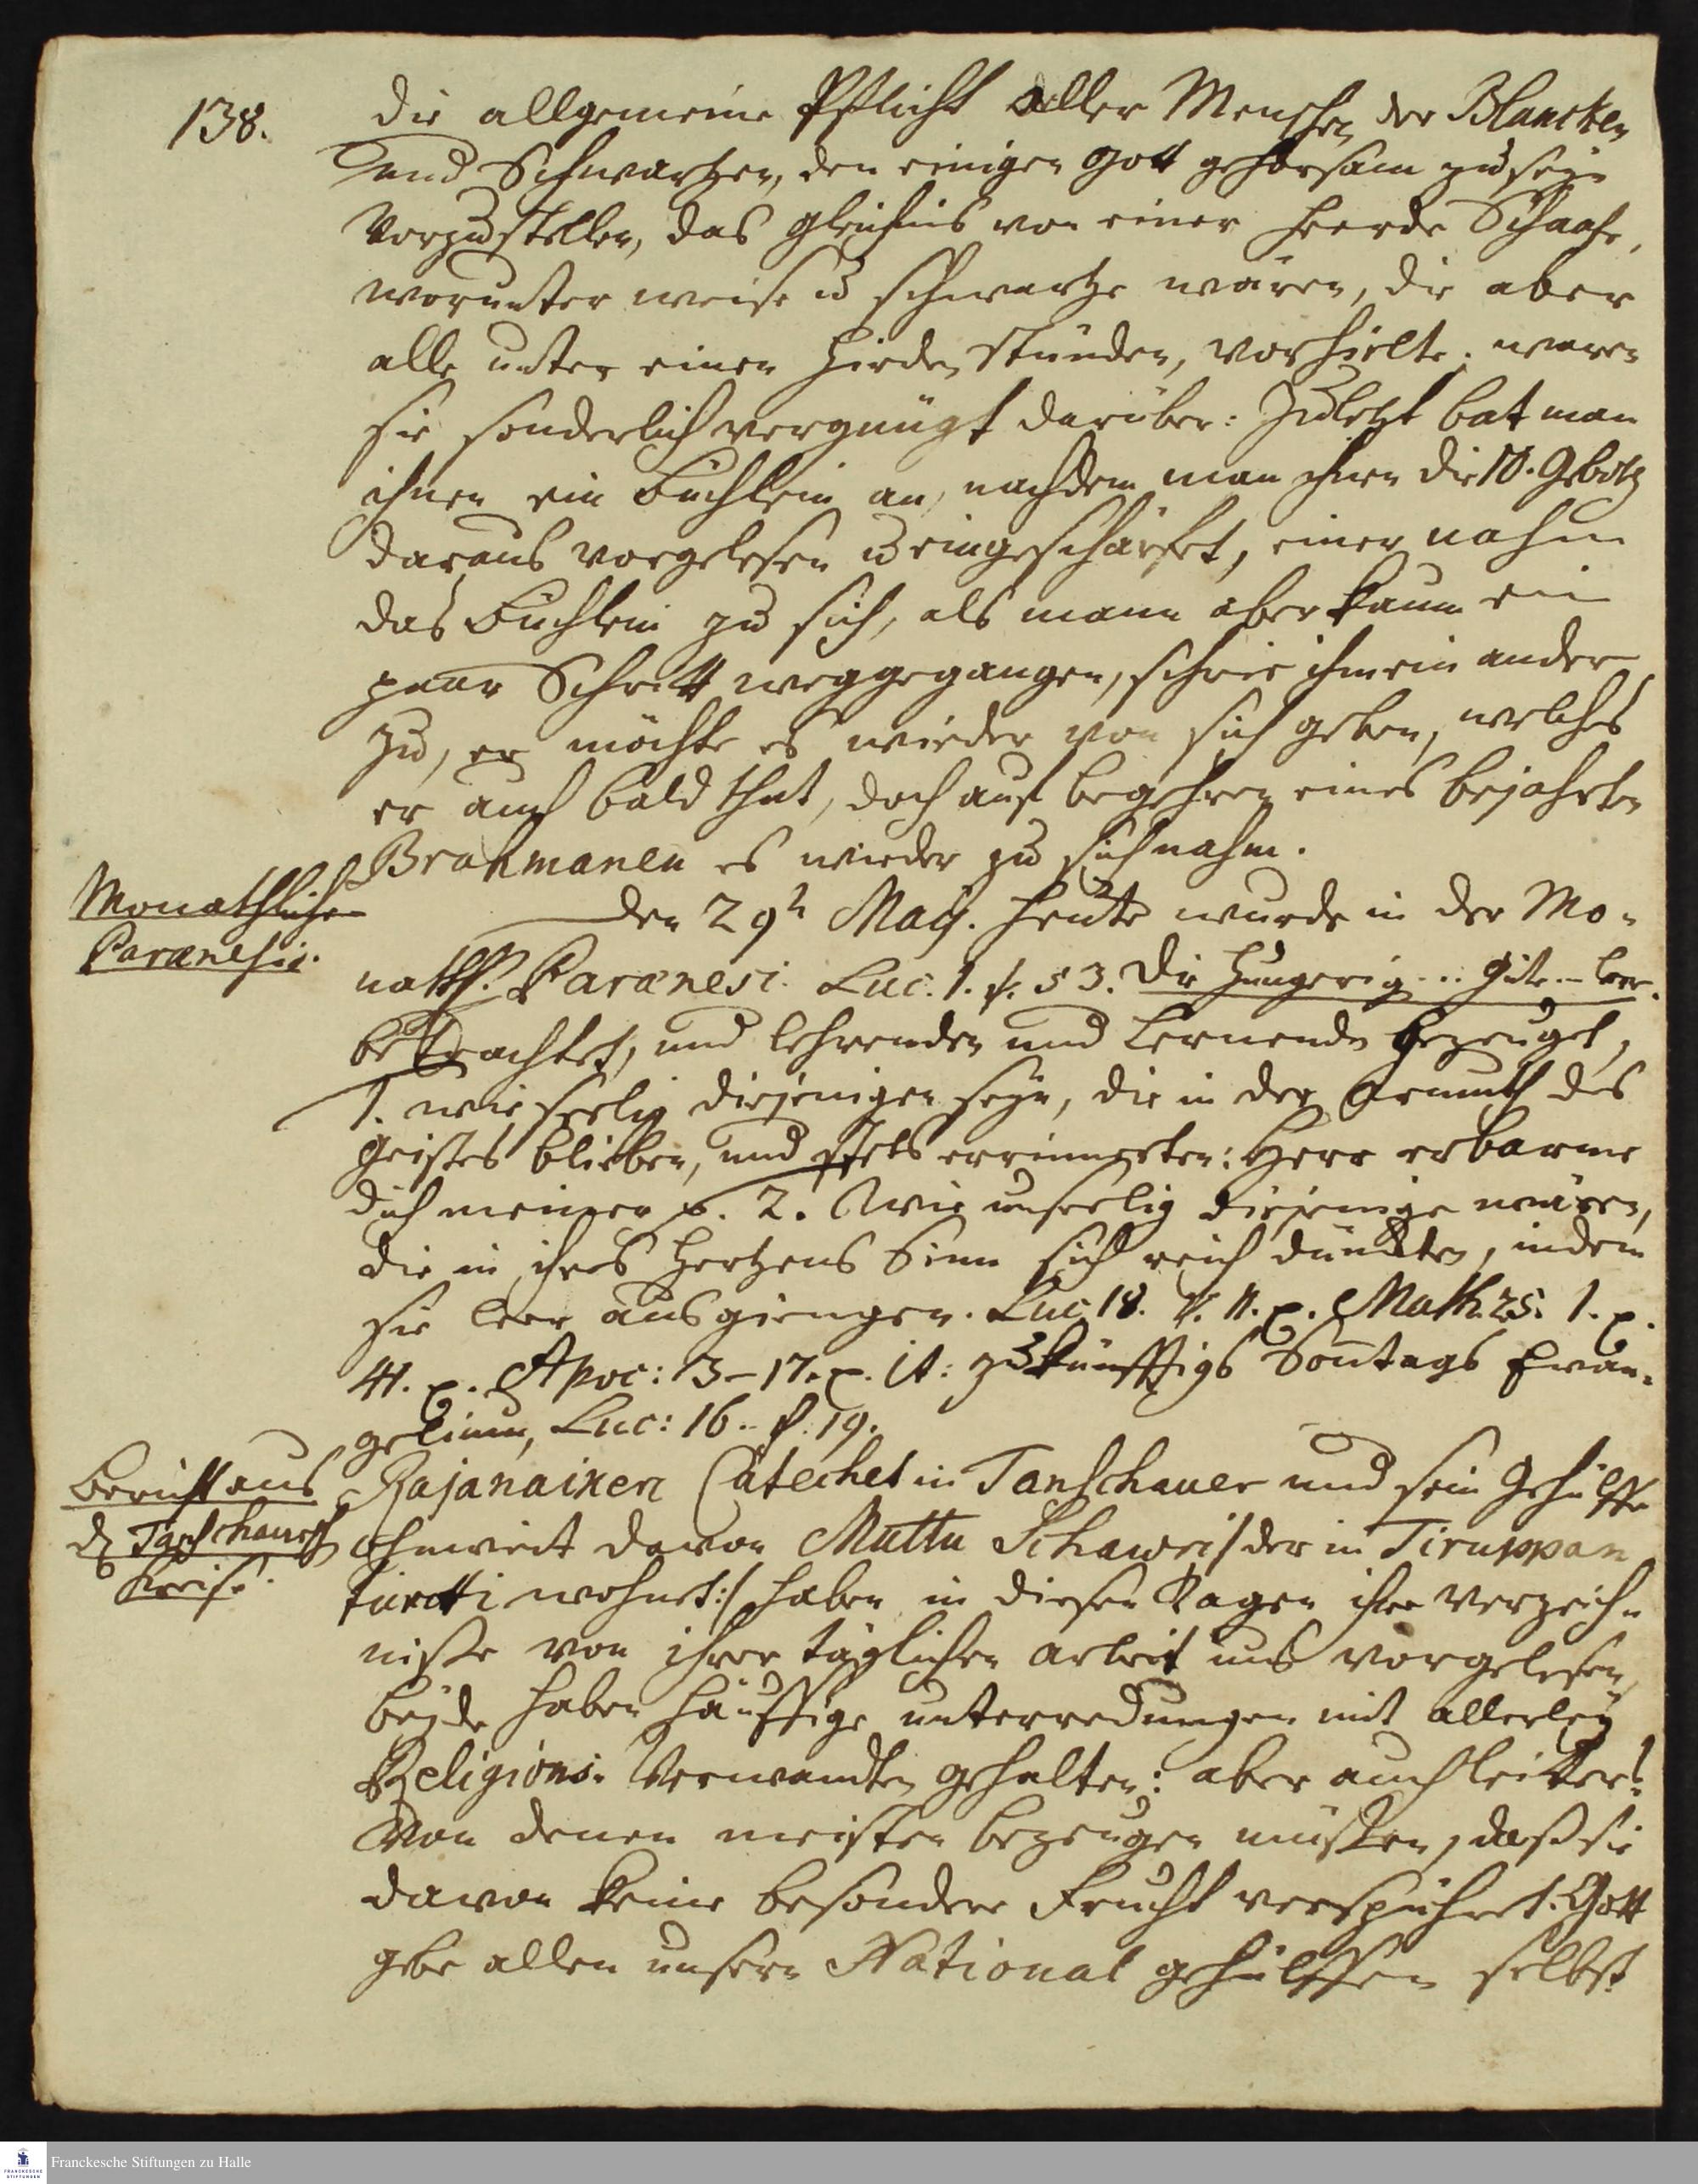 138.
die allgemeine Pflicht aller Menschen der Blancken
und Schwartzen, den einigen Gott gehorsam zu seyn
vorzustellen, das Gleichnis von einer Heerde Schaafe,
worunter weise u schwartze wären, die aber
alle unter einen Hirden stünden, vorhielte; waren
sie sonderlich vergnügt darüber: Zuletzt bat man
ihnen ein Büchlein an, nachdem man ihnen die 10. Gebote
daraus vorgelesen u eingeschärfet, einer nahm
das Büchlein zu sich, als mann aber kaum ein
paar Schritt weggegangen, schrie ihm ein ander
zu, er möchte es wieder von sich geben, welches
er auch bald that, doch auf begehren eines bejahrten
Brahmanen es wieder zu sich nahm.
Monathliche
Paranesis.
den 29t Maij. Heute wurde in der Mo-
nathl. Paranesi. Luc. 1. v. 53. Die Hungerig... Güte... leer.
betrachtet, und lehrenden und Lernenden bezeuget,
1. wie seelig diejenigen seyn, die in der Armuth des
Geistes blieben, und stets erinnerten: Herr erbarme
dich meiner p. 2. Wie unseelig diejenige wären,
die in ihres Hertzens Sinn sich reich dünckten, indem
sie leer ausgiengen. Luc. 18. v. 11. p. Math. 25. 1. p.
41. p. Apoc: 3-17. p. it: zukünfftigs Sontags Evan-
gelium, Luc: 16. v. 19.
Bericht aus
d Tanschaursch
Kreise.
Rajanaiken Catechet in Tanschauer und sein Gehülffe
ohnweit davon Muttu Schawri /: der in Tiruppan
turutti wohnet :/ haben in diesen Tagen ihre Verzeich-
niße von ihrer täglichen Arbeit uns vorgelesen,
beyde haben häuffige unterredungen mit allerley
Religions-Verwandten gehalten: aber auch leider!
Von denen meisten bezeugen müßen, daß sie
davon keine besondere Frucht verspühret. Gott
gebe allen unsern National gehülffen selbst
Franckesche Stiftungen zu Halle
FRANCKESCHE
STIFTUNGEN